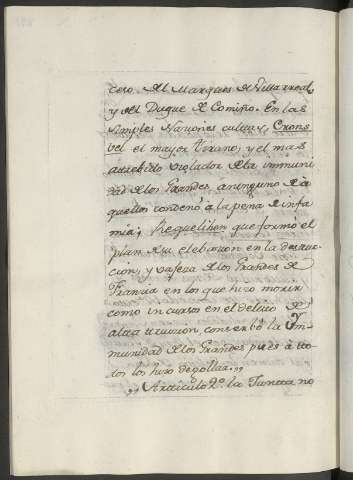 cero del Marques de Villarreal,
y del Duque de Comiño. En las
simples Naciones cultas, Crons
vel el mayor tirano, y el mas
atrebido violador de la inmuni
dad de los Grandes, aninguno de a
quellos condenó à la pena de infa
mia; Requelieu que formó el
plan de su elebacion en la destruc
cion, y vageza de los Grandes de
Francia en los que hizo morir
como incursos en el delito de
alta traicion conserbó la Ym
munidad de los Grandes pues à to
dos los hizo degollar.,,
,,Articulo 2º la Juncta no